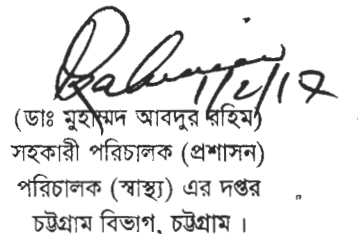 1/2/17
(ডাঃ মুহাম্মদ আবদুর রহিম)
সহকারী পরিচালক (প্রশাসন)
পরিচালক (স্বাস্থ্য) এর দপ্তর
চট্টগ্রাম বিভাগ, চট্টগ্রাম ।